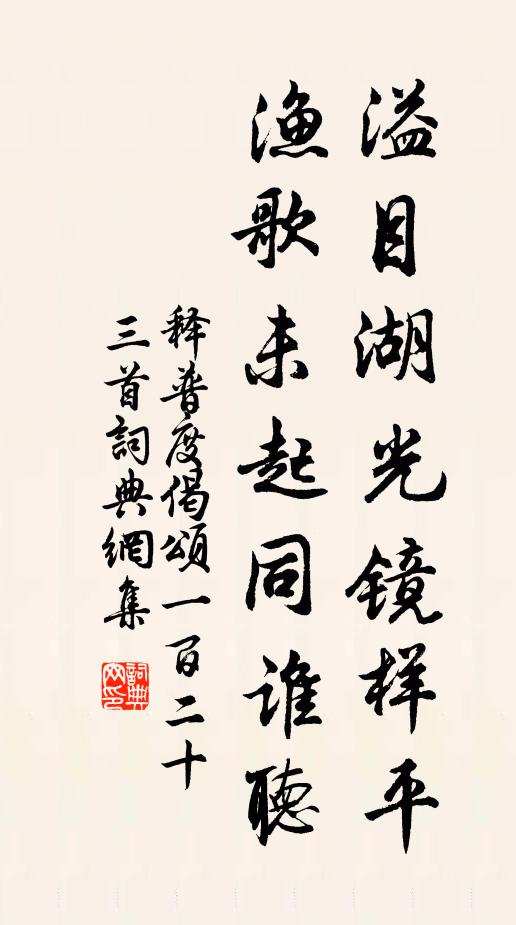 溢目湖光镜样平
渔歌未起同谁聴
释普度偈颂一百二十
三首詞典網集
詞典网印